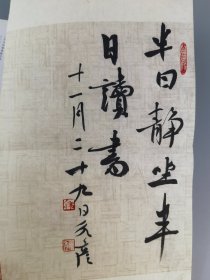 半日静坐半
日讀書
十一月二十九日文彦